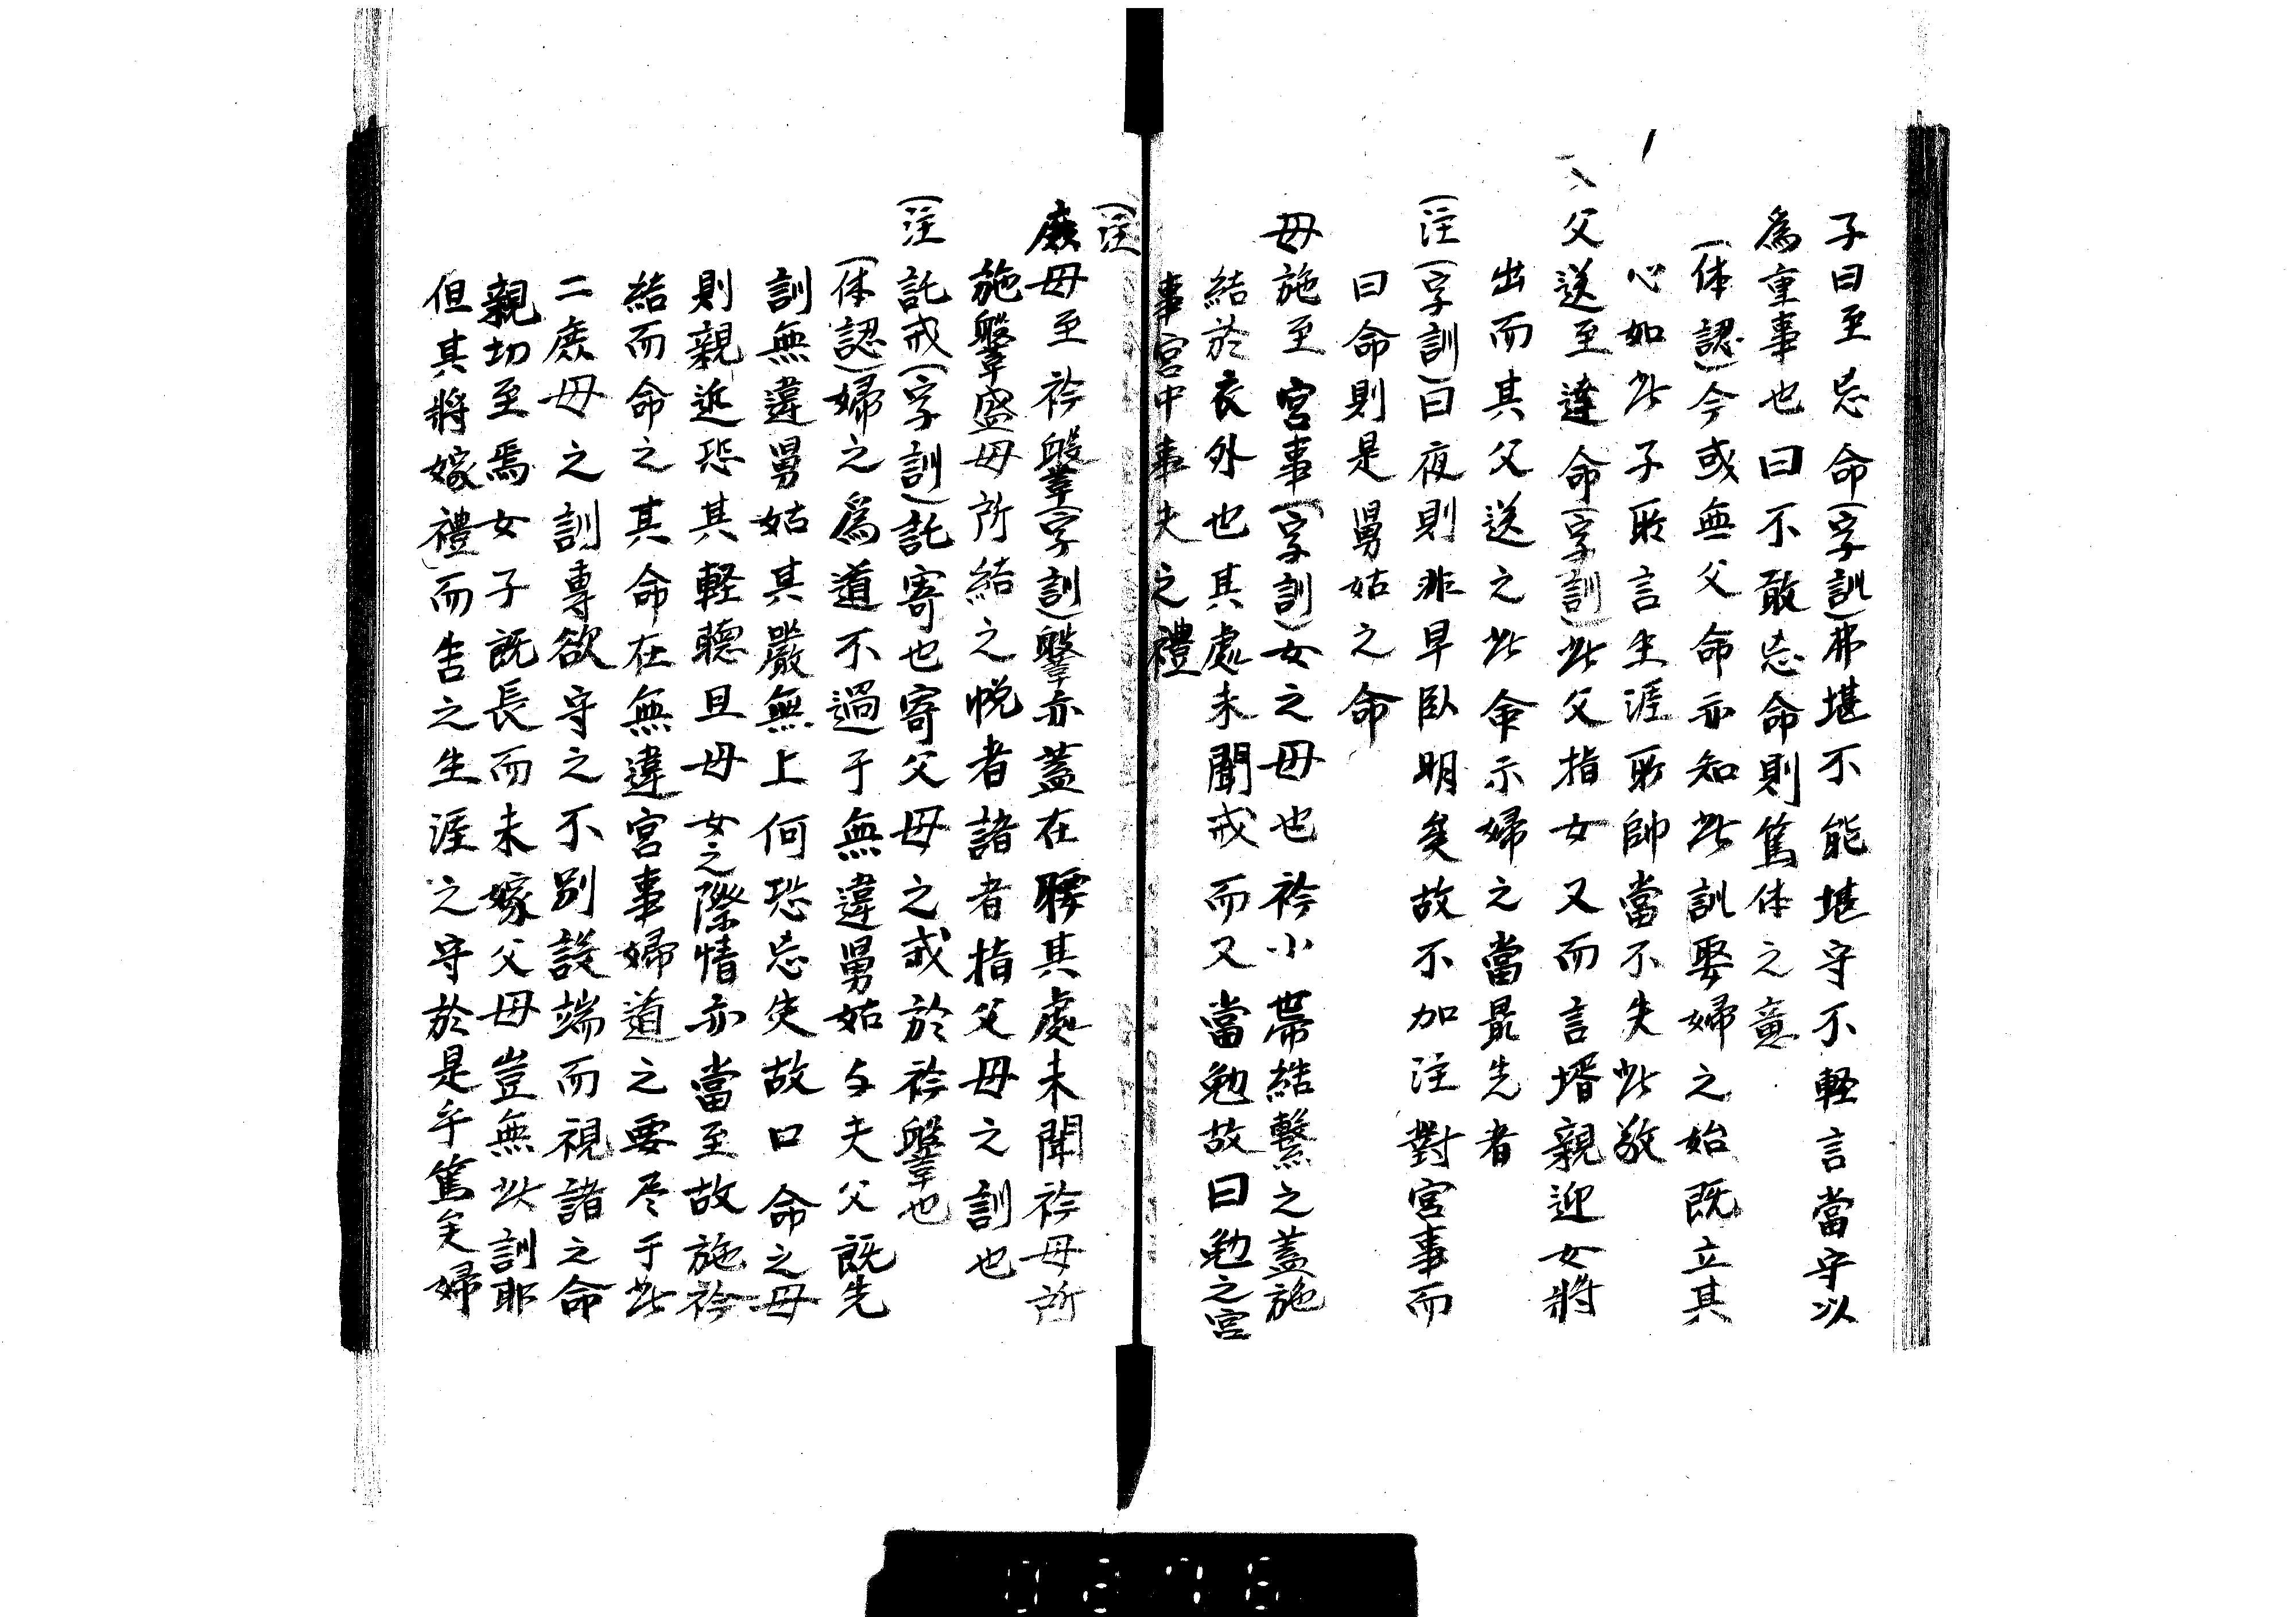 子曰至忌命(字訓)弗堪不能堪守不軽言當守以
為重事也曰不敢忘命則篤体之意
(体認)今或無父命亦知此訓娶婦之始既立其
心如此子所言生涯所帥當不失此敬
父送至違命(字訓)此父指女父而言壻親迎女將
出而其父送之此命示婦之當最先者
(注(字訓)曰夜則非早臥明矣故不加注對宮事而
曰命則是舅姑之命
母施至宮事(字訓)女之母也衿小帶結繫之蓋施
結於衣外也其處未聞戒而又當勉故曰勉之宮
事宮中事夫之禮
(注
庶母至衿鞶(字訓)鞶亦蓋在腰其處未聞衿母所
施鞶盛母所結之帨者諸者指父母之訓也
(注託戒(字訓)託寄也寄父母之戒於衿鞶也
(体認)婦之為道不過于無違舅姑与夫父既先
訓無違舅姑其嚴無上何恐忘失故口命之母
則親近恐其軽聽且母女之際情亦當至故施衿
結而命之其命在無違宮事婦道之要尽于此
二庶母之訓專欲守之不別設端而視諸之命
親切至焉女子既長而未嫁父母豈無此訓耶
但其將嫁禮而告之生涯之守於是乎篤矣婦